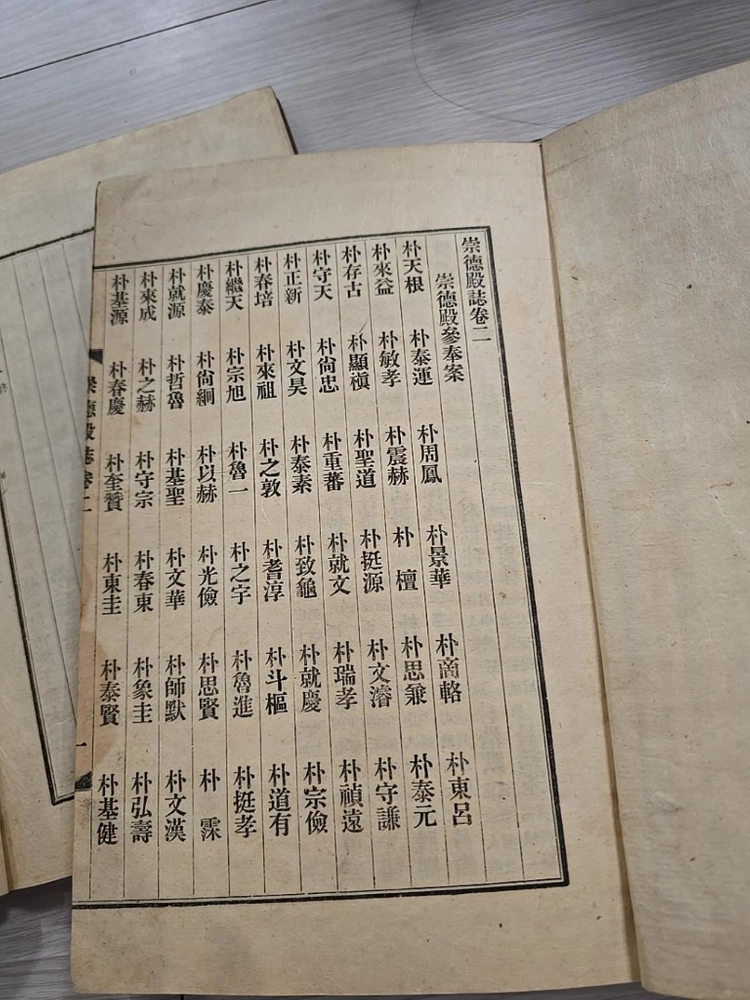 崇德殿誌卷二
崇德殿參奉案
朴天根 朴泰運 朴周鳳 朴景華 朴啇輅 朴東呂
朴來益 朴敏孝 朴震赫 朴檀 朴思兼 朴泰元
朴存古 朴顯稹 朴聖道 朴挺源 朴文濬 朴守謙
朴守天 朴尙忠 朴重蕃 朴就文 朴瑞孝 朴禎遠
朴正新 朴文昊 朴泰素 朴致龜 朴就慶 朴宗儉
朴春培 朴來祖 朴之敦 朴耆淳 朴斗樞 朴道有
朴繼天 朴宗旭 朴魯一 朴之宇 朴魯進 朴挺孝
朴慶泰 朴尙絅 朴以赫 朴光儉 朴思賢 朴
朴就源 朴哲魯 朴基聖 朴文華 朴師默 朴文漢
朴來成 朴之赫 朴守宗 朴春東 朴象圭 朴弘壽
朴基源 朴春慶 朴奎贊 朴東圭 朴泰賢 朴基健
崇德殿誌卷二 一